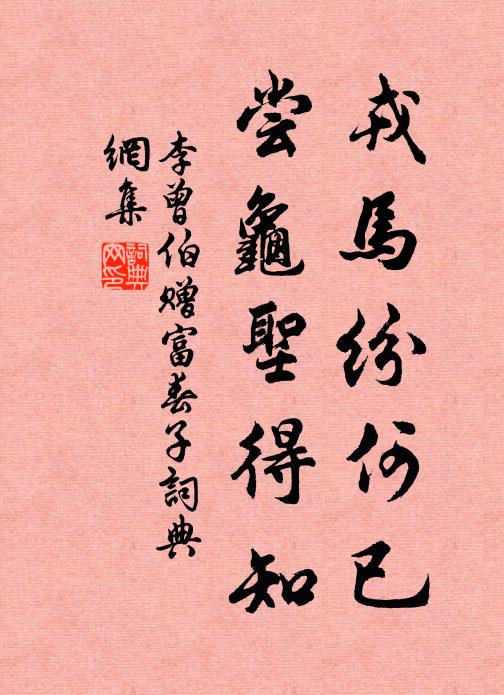 戎馬紛何已
嘗龜聖得知
李曾伯贈富春子詞典
網集
詞典
网印